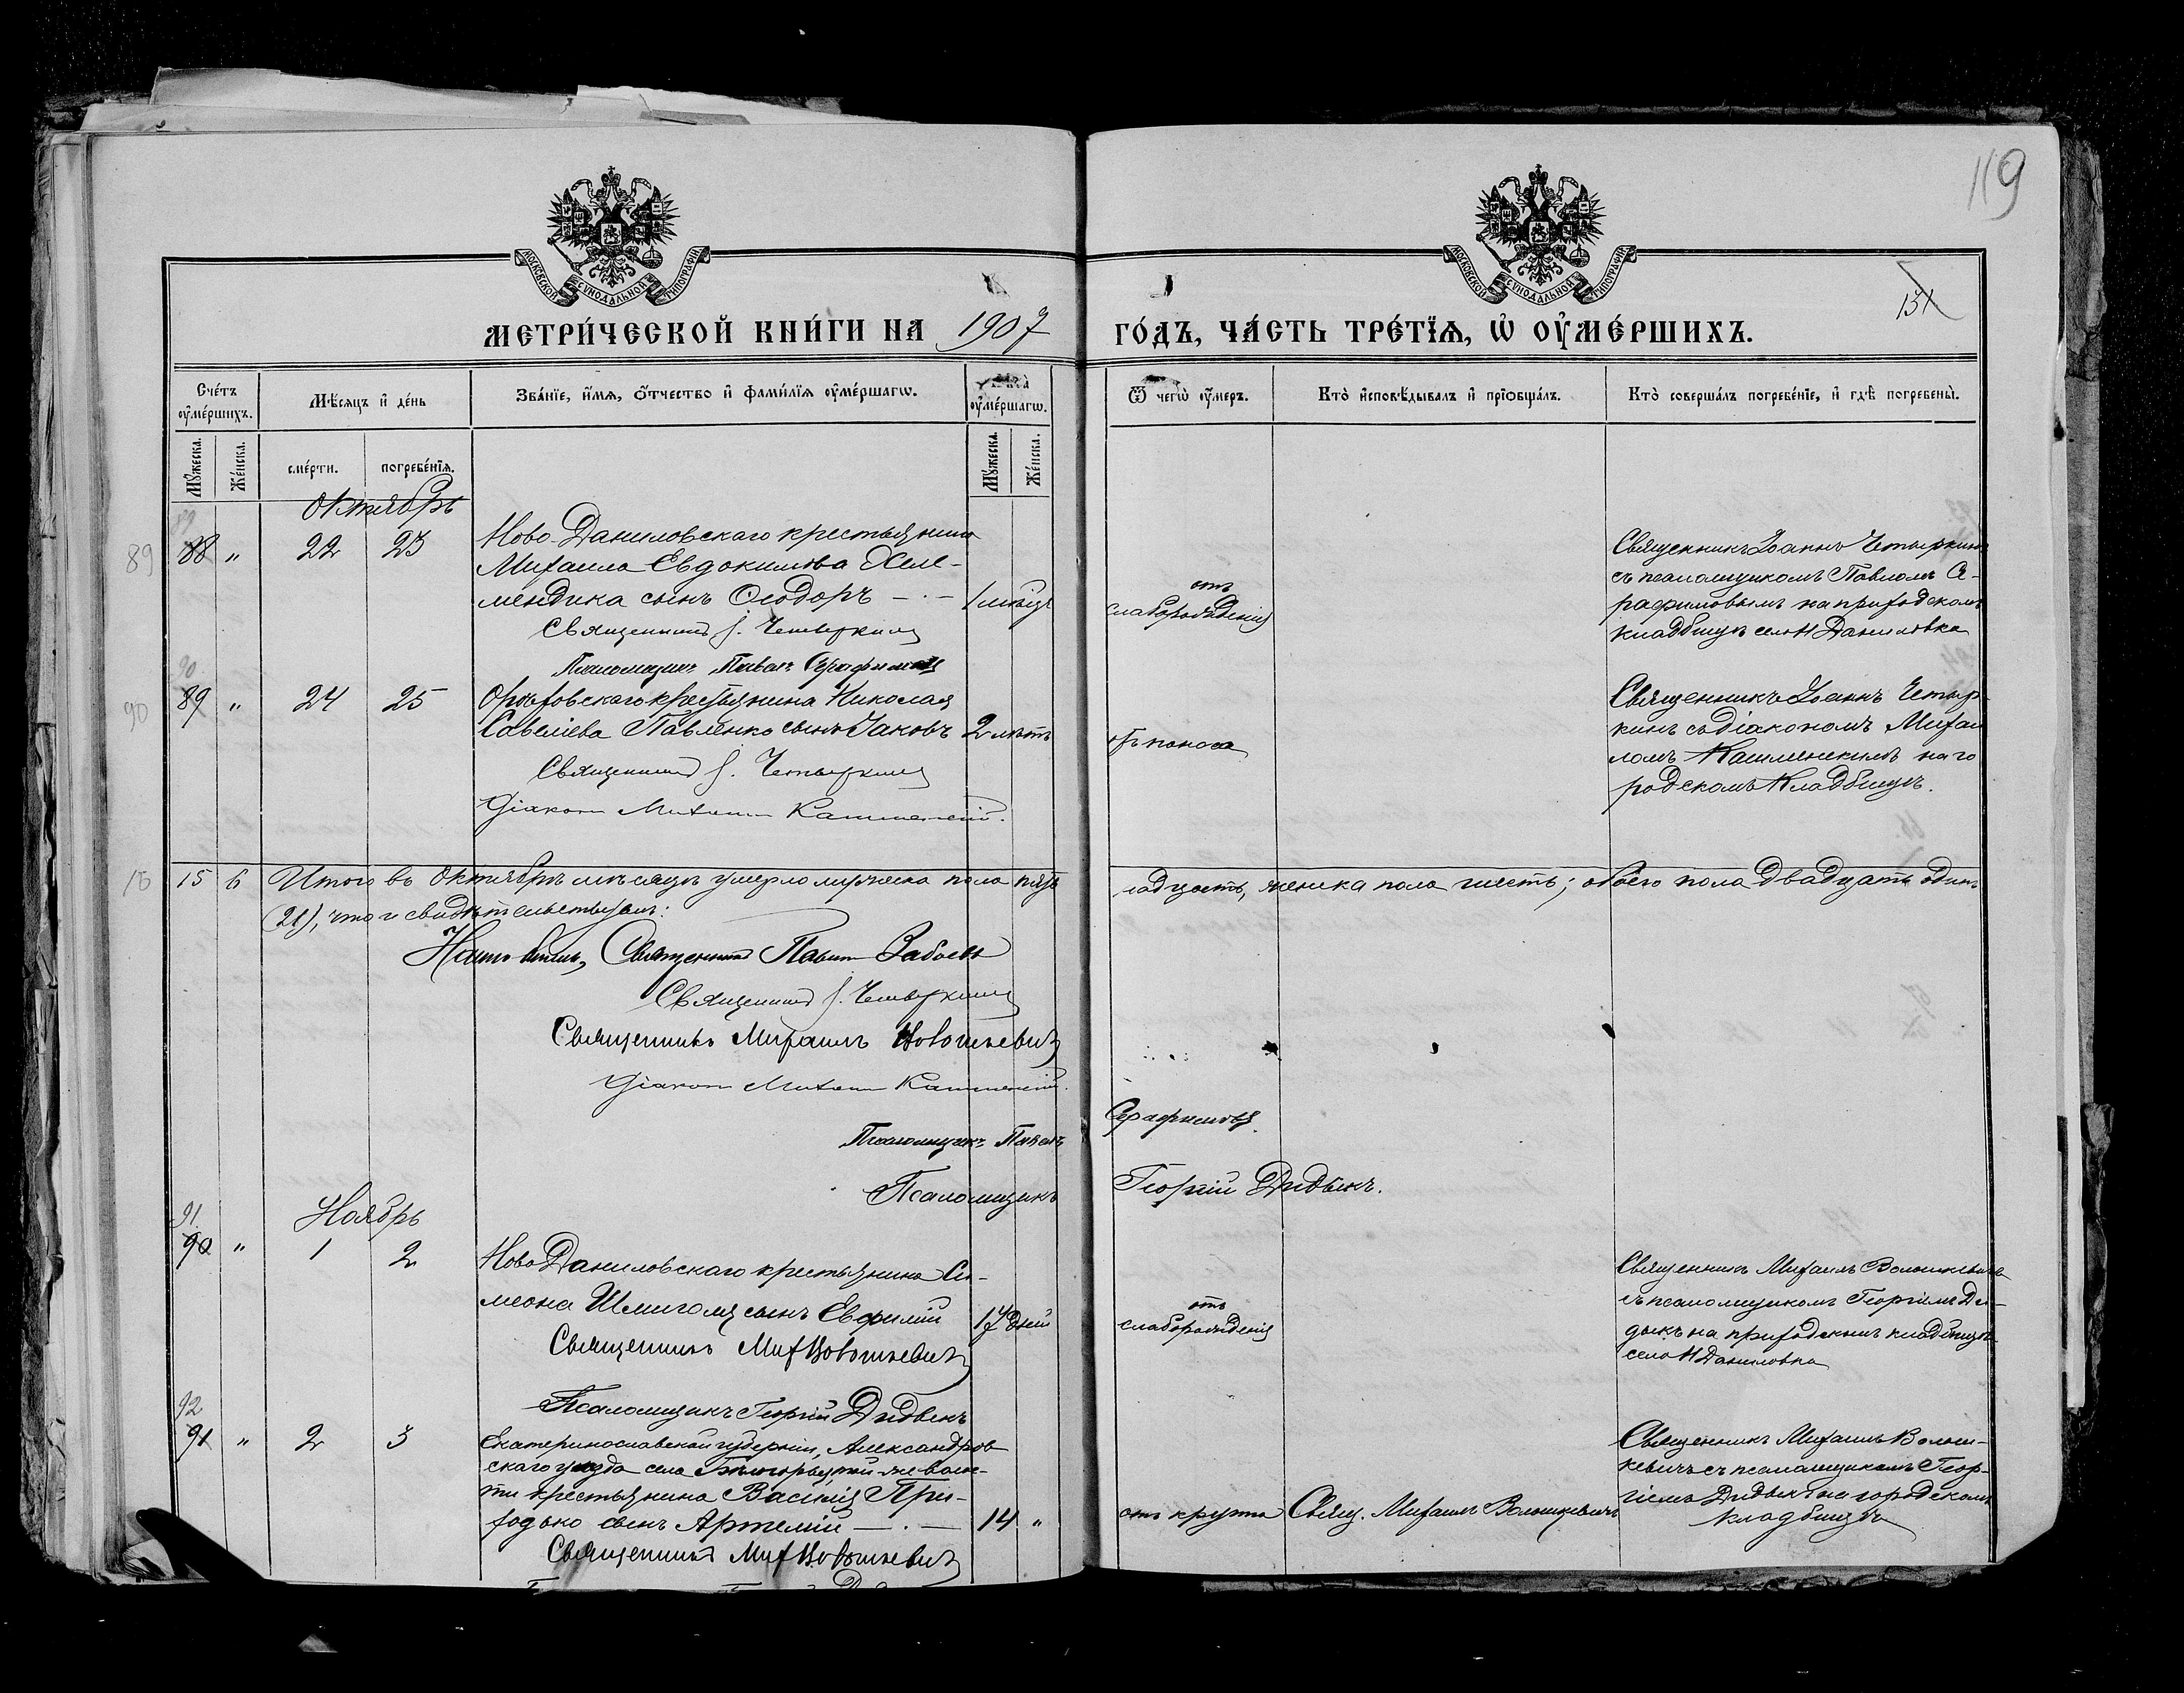 119
151
МОСКОВСКОЙ СУНОДАЛЬНОЙ ТИПОГРАФІИ
МОСКОВСКОЙ СУНОДАЛЬНОЙ ТИПОГРАФІИ
МЕТРИ́ЧЕСКОЙ КНИ́ГИ НА 1907 ГО́ДЪ, ЧА́СТЬ ТРЕ́ТЇѦ, Ѡ҆ ОУ҆МЕ́РШИХЪ.
Сче́тъ оу҆ме́ршихъ.
Мѣ́сяцъ и҆ де́нь
Зва́нїе, и҆́мѧ, ѻ҆́тчество и҆ фами́лїѧ оу҆ме́ршагѡ.
Лѣ́та оу҆ме́ршагѡ.
Ѿ чегѡ̀ оу҆́меръ.
Кто̀ и҆сповѣ́дывалъ и҆ прїобща́лъ.
Кто̀ соверша́лъ погребе́нїе, и҆ гдѣ̀ погребены̀.
Мꙋ́жеска.
Же́нска.
сме́рти.
погребе́нїѧ.
Мꙋ́жеска.
Же́нска.
Октябрь
89
89
88 " 22 23
Ново-Даниловскаго крестьянина
Михаила Евдокимова Хеле-
мендика сынъ Ѳеодоръ — · — 1 мѣсяцъ
Священникъ І. Четыркинъ
Псаломщикъ Павелъ Серафимовъ
отъ
слаборожденія
Священникъ Іоаннъ Четыркинъ
съ псаломщикомъ Павломъ Се-
рафимовымъ на приходскомъ
кладбищѣ села Н Даниловка
90
90
89 " 24 25
Орѣховскаго крестьянина Николая
Савеліева Павленко сынъ Іаковъ 2 лѣтъ
Священникъ І. Четыркинъ
Діаконъ Михаилъ Каншенскій.
отъ поноса
Священникъ Іоаннъ Четыр-
кинъ съ діакономъ Михаи
ломъ на го
родскомъ Кладбищѣ.
15
15 6 Итого въ Октябрѣ мѣсяцѣ умерло мужеска пола пят надцать, женска пола шесть; обоего пола двадцать одинъ
(21), что и свидѣтельствуемъ:
Настоятель, Священникъ Павелъ Забоевъ
Священникъ І. Четыркинъ
Священникъ Михаилъ Волошкевичъ
Діаконъ Михаилъ
Псаломщикъ Павелъ Серафимовъ.
Псаломщикъ Георгій Дидыкъ.
Ноябрь
91
90 " 1 2
Ново Даниловскаго крестьянина Си-
меона Шмиголя сынъ Евфимій 17 дней
Священникъ Мих Волошкевичъ
Псаломщикъ Георгій Дидыкъ
отъ
слаборожденія
Священникъ Михаилъ Волошкевичъ
съ псаломщикомъ Георгіемъ Ди-
дыкъ на приходскомъ кладбищѣ
села Н Даниловка
92
91 " 2 3
Екатеринославской губерніи, Александров
скаго уѣзда села Бѣлогорья, той-же волос-
ти крестьянина Василія При-
ходько сынъ Артемій — · — 14 "
Священникъ Мих Волошкевичъ
отъ крупа
Свящ. Михаилъ Волошкевичъ
Священникъ Михаилъ Волош-
кевичъ съ псаломщикомъ Геор-
гіемъ Дидыкъ на городскомъ
кладбищѣ